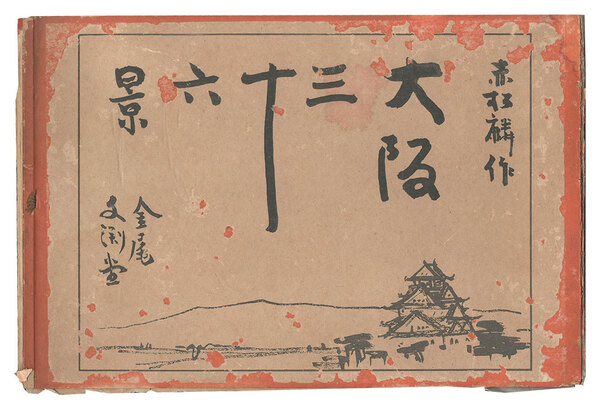 赤松麟作
大阪三十六景
金尾文淵堂